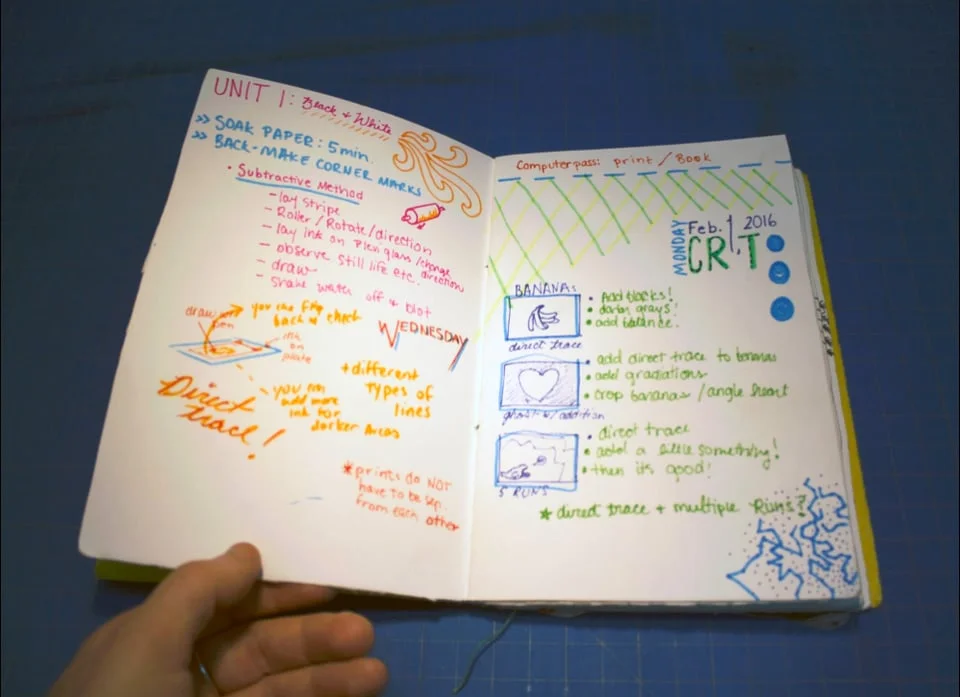 UNIT 1: Black + White
>> SOAK PAPER: 5 min.
>> BACK-MAKE CORNER MARKS
• Subtractive Method
- lay stripe
- Roller/Rotate/direction
- lay ink on Plexiglass/change direction
- observe still life etc.
- draw
- shake water off + blot
you can flip
back + check
draw
pen
ink
on
plate
WEDNESDAY
Direct
trace!
- you can
add more
ink for
darker areas
+ different
types of
lines
* prints do NOT
have to be sep.
from each other
Computer pass: print / Book
MONDAY
Feb. 1, 2016
CRIT
BANANAS
• Add blacks!
• darker grays!
• add balance.
direct trace
• add direct trace to bananas
• add gradiations
• crop bananas / angle heart
ghost w/ addition
• direct trace
• add a little something!
• then it's good!
5 RUNS
* direct trace + multiple Runs?